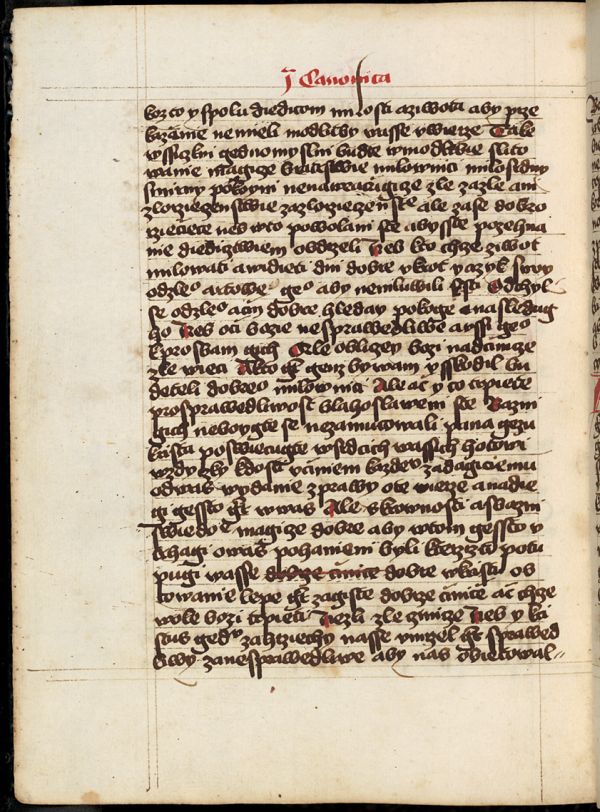 j Canonica
koz to y spolu diedicom milosti aziwota aby prze
kazanie nemieli modlitby wasse ywierze Take
wssiczkni gednomyslni budte wmodlitbie slito
wanie magize bratrstwie milownici milosrdny
smirny pokorni nenawracugize zle zazle ani
zlorzieczenstwie zazlorzieczenstwie ale zase dobro
rzieciete neb wto powolani ste abyste pozehna
nie diedictwiem obdrzeli Neb kto chze ziwot
milowati awidieti dni dobre ukrot yazyk swoy
odzleo artowe geo aby nemluwili lsti Odchyl
se odzleo acin dobre hleday pokoge anasledug
ho Neb oci bozie nesprawedliwe aussi geo
kprosbam gich Ale oblizey bozi nadcinize
zle wieci Akto gt genz by wam usskodil bu
deteli dobreo milownici Ale ac y co trpiete
prosprawedliwost blahoslaweni ste Bazni
gich neboygte se nezamucowali pana gezu
krista poswiecugte wsrdcich wassich hotowi
wzdyczky kdosti ucinieni kazdeu zadagiciemu
odwas wydanie zprawy ote wierze anadie
gi gessto gt wwas Ale skrownosti asbazni
swiedo magize dobre aby wtom gessto v
trhagi owas pohanieni byli kterizto potu
pugi wasse dobre cinite dobre wkristu ob
cowanie lepe gt zagiste dobrze cinice ac chze
wole bozi trpieti Nezli zle cinize Neb y kri
stus gedu zahrziechy nasse umrzel gt sprawed
liwy zanesprawedliwe aby nas obietowal